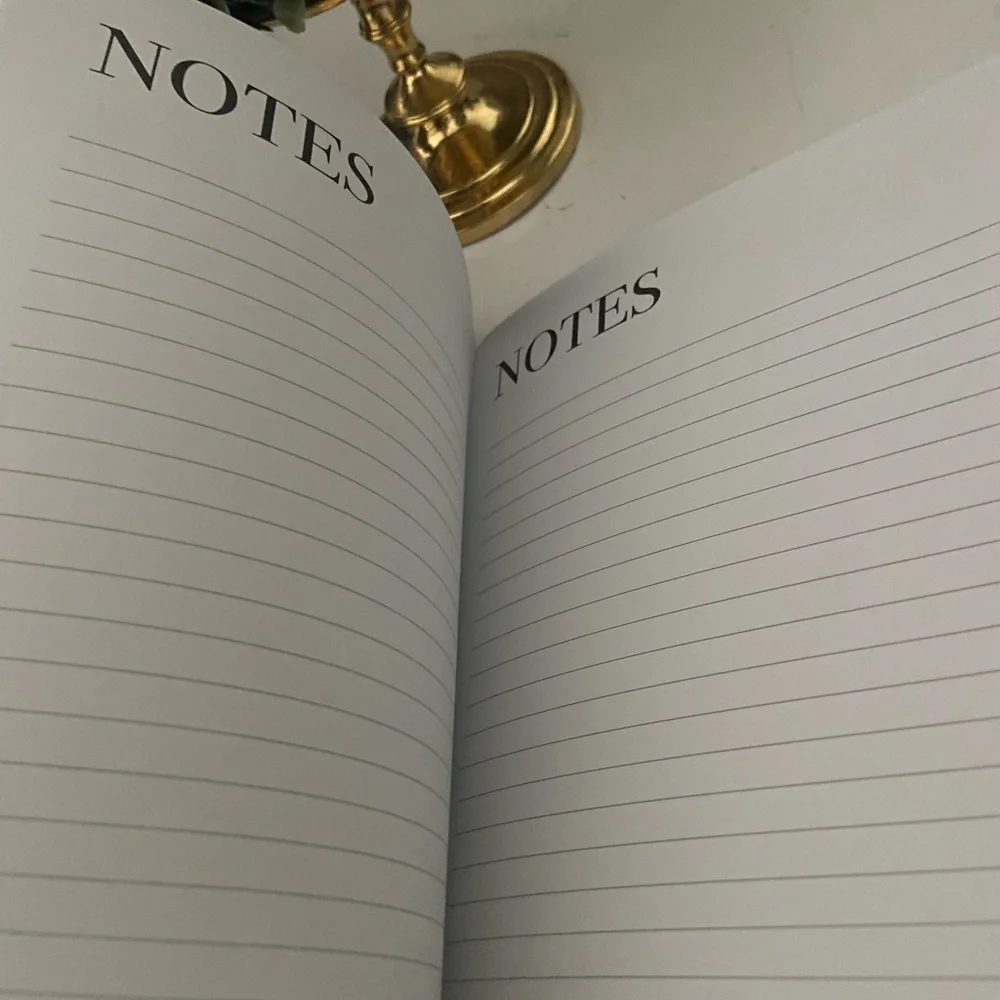 NOTES
NOTES